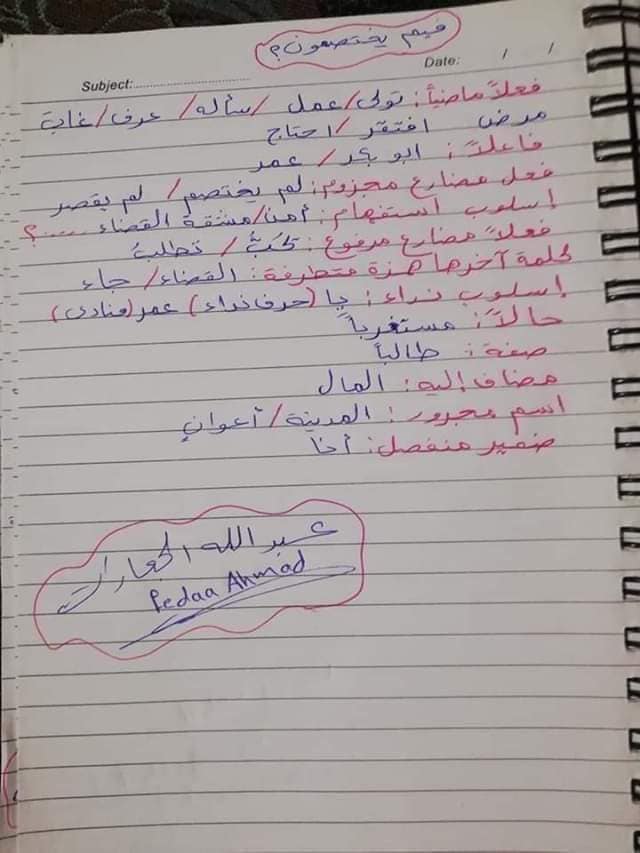 فيم يختصمون؟
Subject:
Date: / /
فعلاً ماضياً: تولى/ عمل / سأله/ عرف/ غاب
مرض افتقر / احتاج
فاعلاً: ابو بكر/ عمر
فعل مضارع مجزوم: لم يختصم/ لم يقصر
إسلوب استفهام: أمن/ مشقة القضاء ..... ؟
فعلاً مضارع مرفوع: تحبُّ/ تطلبُ
كلمة آخرها همزة متطرفة: القضاء/ جاء
إسلوب نداء: يا (حرف نداء) عمر (منادى)
حالاً: مستغرباً
صفة: طالباً
مضاف إليه: المال
اسم مجرور: المدينة/ أعوانٍ
ضمير منفصل: أنا
عبد الله الجعارات
Pedaa Ahmad